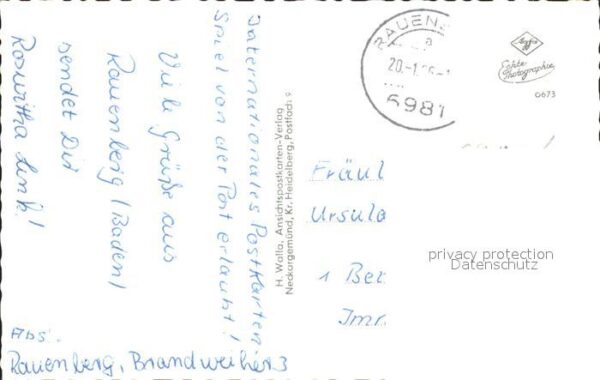 Internationales Postkarten
Spiel von der Post erlaubt!
Viele Grüße aus
Rauenberg (Baden)
sendet Dir
Roswitha Link!
Abs.
Rauenberg, Brandweiher 3
H. Walla, Ansichtspostkarten-Verlag
Neckargemünd, Kr. Heidelberg, Postfach
RAUEN
a
20.-1.
6981
Agfa
Echte
Photographie
0673
Fräul
Ursula
1 Ber
Jmr.
privacy protection
Datenschutz